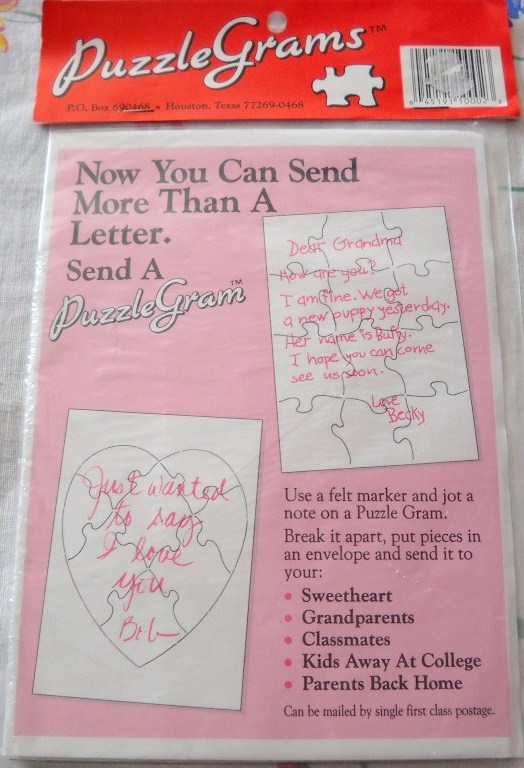 PuzzleGrams™
P.O. Box 690468 • Houston, Texas 77269-0468
Now You Can Send
More Than A
Letter.
Send A
PuzzleGram™
Dear Grandma
How are you?
I am fine. We got
a new puppy yesterday.
Her name is Buffy.
I hope you can come
see us soon.
Love
Becky
Just wanted
to say
I love
you
Bob
Use a felt marker and jot a
note on a Puzzle Gram.
Break it apart, put pieces in
an envelope and send it to
your:
• Sweetheart
• Grandparents
• Classmates
• Kids Away At College
• Parents Back Home
Can be mailed by single first class postage.